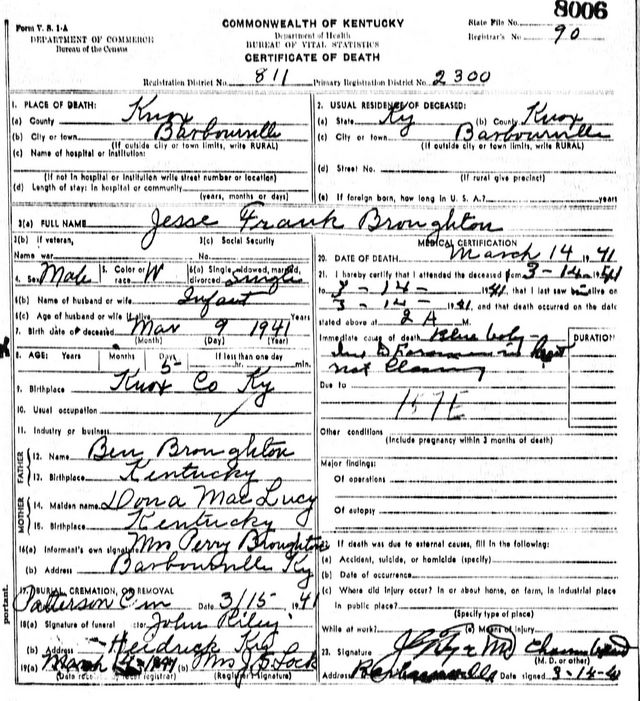 8006
Form V. S. 1-A
DEPARTMENT OF COMMERCE
Bureau of the Census
COMMONWEALTH OF KENTUCKY
Department of Health
BUREAU OF VITAL STATISTICS
CERTIFICATE OF DEATH
State File No.
Registrar's No. 90
Registration District No. 811 Primary Registration District No. 2300
1. PLACE OF DEATH:
(a) County Knox
(b) City or town Barbourville
(If outside city or town limits, write RURAL)
(c) Name of hospital or institution:
(If not in hospital or institution write street number or location)
(d) Length of stay: In hospital or community
(years, months or days)
2. USUAL RESIDENCE OF DECEASED:
(a) State Ky (b) County Knox
(c) City or town Barbourville
(If outside city or town limits, write RURAL)
(d) Street No.
(If rural give precinct)
(e) If foreign born, how long in U. S. A.? years
3(a) FULL NAME Jesse Frank Broughton
3(b) If veteran, 3(c) Social Security
Name war No.
4. Sex Male 5. Color or race W 6(a) Single, widowed, married, divorced Single
6(b) Name of husband or wife Infant
6(c) Age of husband or wife if alive Years
7. Birth date of deceased Mar 9 1941
(Month) (Day) (Year)
8. AGE: Years Months Days If less than one day
5 hr. min.
9. Birthplace Knox Co Ky
10. Usual occupation
11. Industry or business
FATHER
12. Name Ben Broughton
13. Birthplace Kentucky
MOTHER
14. Maiden name Dona Mae Lucy
15. Birthplace Kentucky
16(a) Informant's own signature Mrs Perry Broughton
(b) Address Barbourville Ky
17. BURIAL, CREMATION, OR REMOVAL
Patterson Cem Date 3/15 1941
18(a) Signature of funeral John Riley
(b) Address Heidrick Ky
19(a) March 1941 (b) Mrs J Lock
(Date received by local registrar) (Registrar signature)
MEDICAL CERTIFICATION
20. DATE OF DEATH March 14 1941
21. I hereby certify that I attended the deceased from 3-14-1941
to 3-14-1941, that I last saw him alive on
3-14-1941, and that death occurred on the date
stated above at 2 A M.
Immediate cause of death Blue baby DURATION
not Closing
Due to
157E
Other conditions
(Include pregnancy within 3 months of death)
Major findings:
Of operations
Of autopsy
22. If death was due to external causes, fill in the following:
(a) Accident, suicide, or homicide (specify)
(b) Date of occurrence
(c) Where did injury occur? In or about home, on farm, in industrial place
in public place?
(Specify type of place)
While at work? (e) Means of injury
23. Signature MD
(M. D. or other)
Address Date signed 3-14-41
portant.